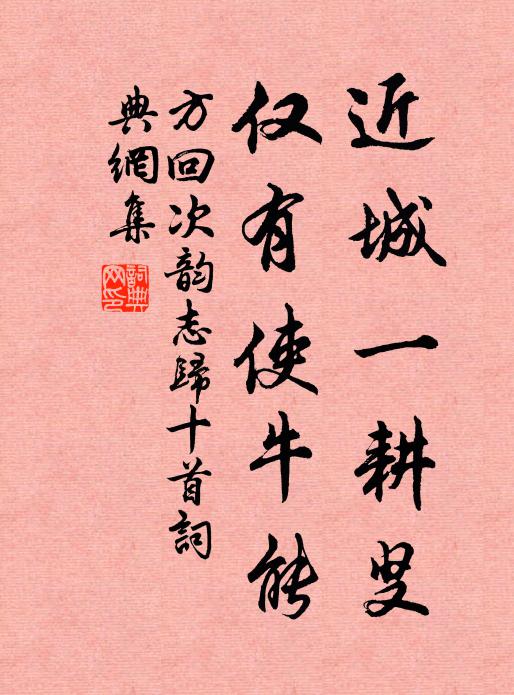 近城一耕叟
仅有使牛能
方回次韵志歸十首詞
典網集
詞典网印